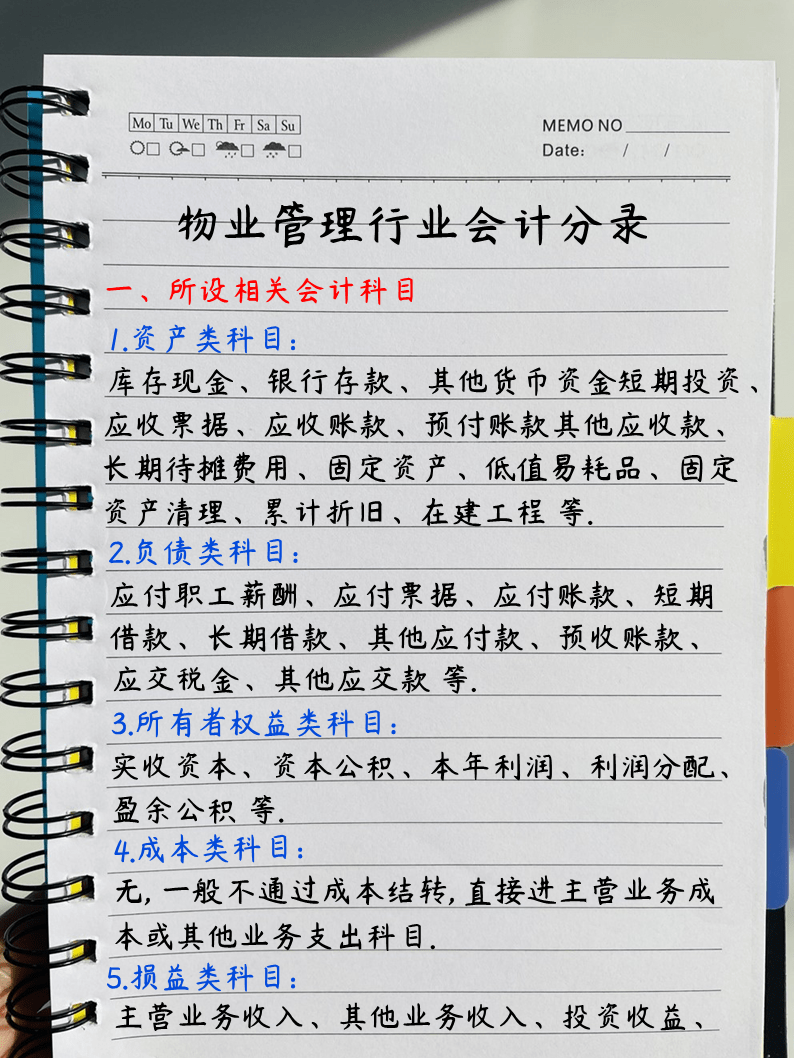 Mo Tu We Th Fr Sa Su
MEMO NO
Date: / /
物业管理行业会计分录
一、所设相关会计科目
1.资产类科目:
库存现金、银行存款、其他货币资金短期投资、
应收票据、应收账款、预付账款其他应收款、
长期待摊费用、固定资产、低值易耗品、固定
资产清理、累计折旧、在建工程 等.
2.负债类科目:
应付职工薪酬、应付票据、应付账款、短期
借款、长期借款、其他应付款、预收账款、
应交税金、其他应交款 等.
3.所有者权益类科目:
实收资本、资本公积、本年利润、利润分配、
盈余公积 等.
4.成本类科目:
无,一般不通过成本结转,直接进主营业务成
本或其他业务支出科目.
5.损益类科目:
主营业务收入、其他业务收入、投资收益、